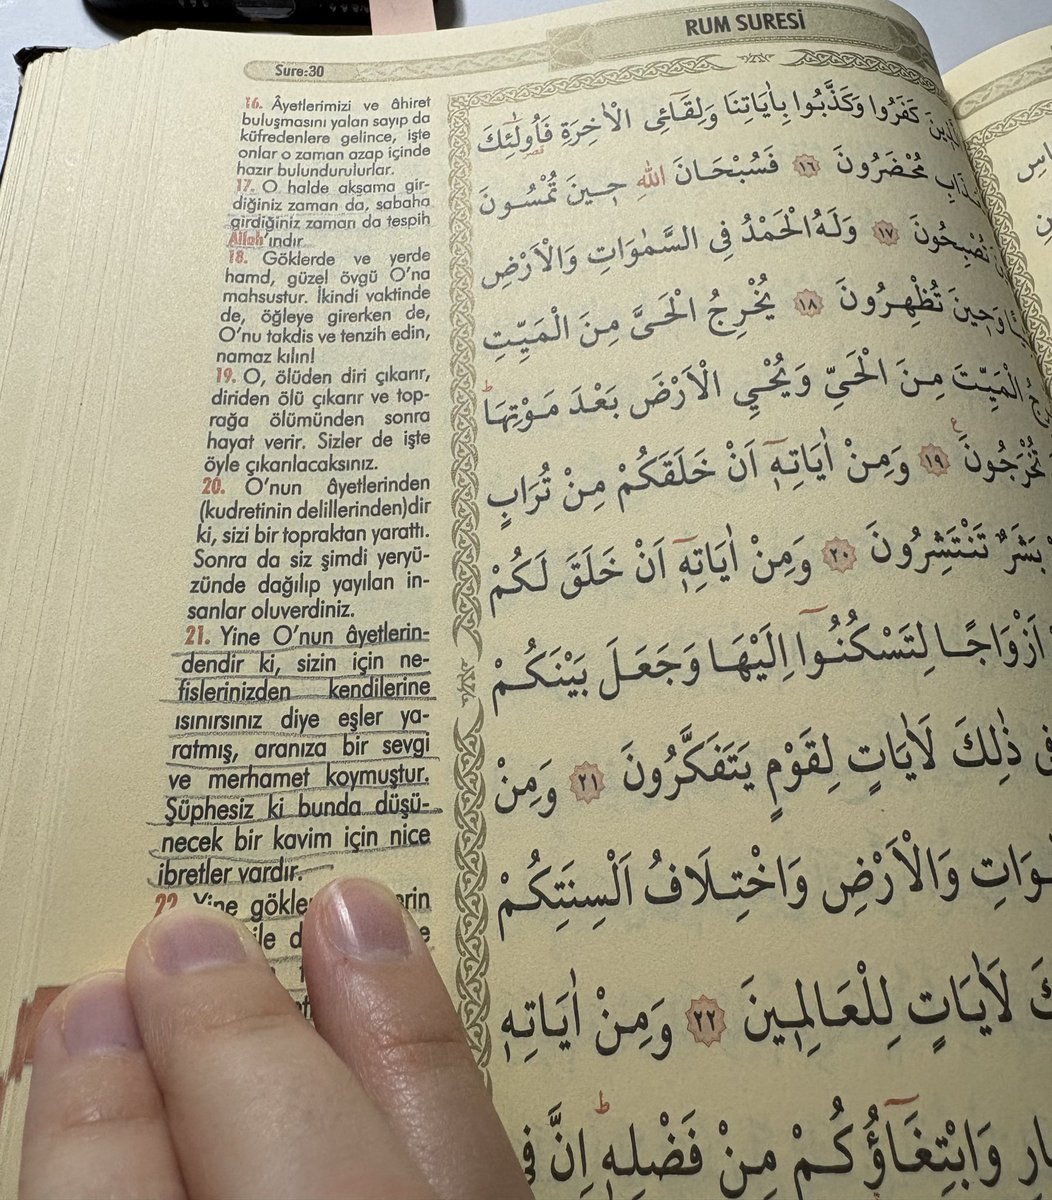 RUM SURESİ
Sure:30
16. Âyetlerimizi ve âhiret
buluşmasını yalan sayıp da
küfredenlere gelince, işte
onlar o zaman azap içinde
hazır bulundurulurlar.
17. O halde akşama gir-
diğiniz zaman da, sabaha
girdiğiniz zaman da tespih
Allah'ındır.
18. Göklerde ve yerde
hamd, güzel övgü O'na
mahsustur. İkindi vaktinde
de, öğleye girerken de,
O'nu takdis ve tenzih edin,
namaz kılın!
19. O, ölüden diri çıkarır,
diriden ölü çıkarır ve top-
rağa ölümünden sonra
hayat verir. Sizler de işte
öyle çıkarılacaksınız.
20. O'nun âyetlerinden
(kudretinin delillerinden)dir
ki, sizi bir topraktan yarattı.
Sonra da siz şimdi yeryü-
zünde dağılıp yayılan in-
sanlar oluverdiniz.
21. Yine O'nun âyetlerin-
dendir ki, sizin için ne-
fislerinizden kendilerine
ısınırsınız diye eşler ya-
ratmış, aranıza bir sevgi
ve merhamet koymuştur.
Şüphesiz ki bunda düşü-
necek bir kavim için nice
ibretler vardır.
22. Yine
ile
كَفَرُوا وَكَذَّبُوا بِاٰيَاتِنَا وَلِقَٓائِ الْاٰخِرَةِ فَاُو۬لٰٓئِكَ
مُحْضَرُونَ ﴿١٦﴾ فَسُبْحَانَ اللّٰهِ ح۪ينَ تُمْسُونَ
تُصْبِحُونَ ﴿١٧﴾ وَلَهُ الْحَمْدُ فِي السَّمٰوَاتِ وَالْاَرْضِ
وَح۪ينَ تُظْهِرُونَ ﴿١٨﴾ يُخْرِجُ الْحَيَّ مِنَ الْمَيِّتِ
الْمَيِّتَ مِنَ الْحَيِّ وَيُحْيِ الْاَرْضَ بَعْدَ مَوْتِهَا
تُخْرَجُونَ ﴿١٩﴾ وَمِنْ اٰيَاتِه۪ٓ اَنْ خَلَقَكُمْ مِنْ تُرَابٍ
بَشَرٌ تَنْتَشِرُونَ ﴿٢٠﴾ وَمِنْ اٰيَاتِه۪ٓ اَنْ خَلَقَ لَكُمْ
اَزْوَاجًا لِتَسْكُنُٓوا اِلَيْهَا وَجَعَلَ بَيْنَكُمْ
ذٰلِكَ لَاٰيَاتٍ لِقَوْمٍ يَتَفَكَّرُونَ ﴿٢١﴾ وَمِنْ
وَالْاَرْضِ وَاخْتِلَافُ اَلْسِنَتِكُمْ
لَاٰيَاتٍ لِلْعَالِم۪ينَ ﴿٢٢﴾ وَمِنْ اٰيَاتِه۪
وَابْتِغَٓاؤُ۬كُمْ مِنْ فَضْلِه۪ اِنَّ